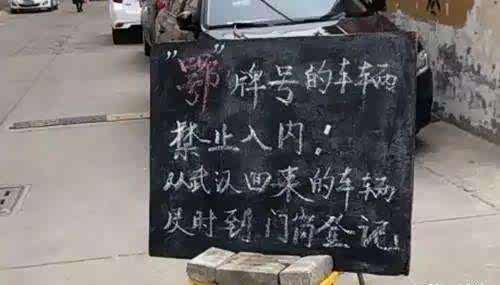 "鄂"牌号的车辆
禁止入内!
从武汉回来的车辆
及时到门岗登记!